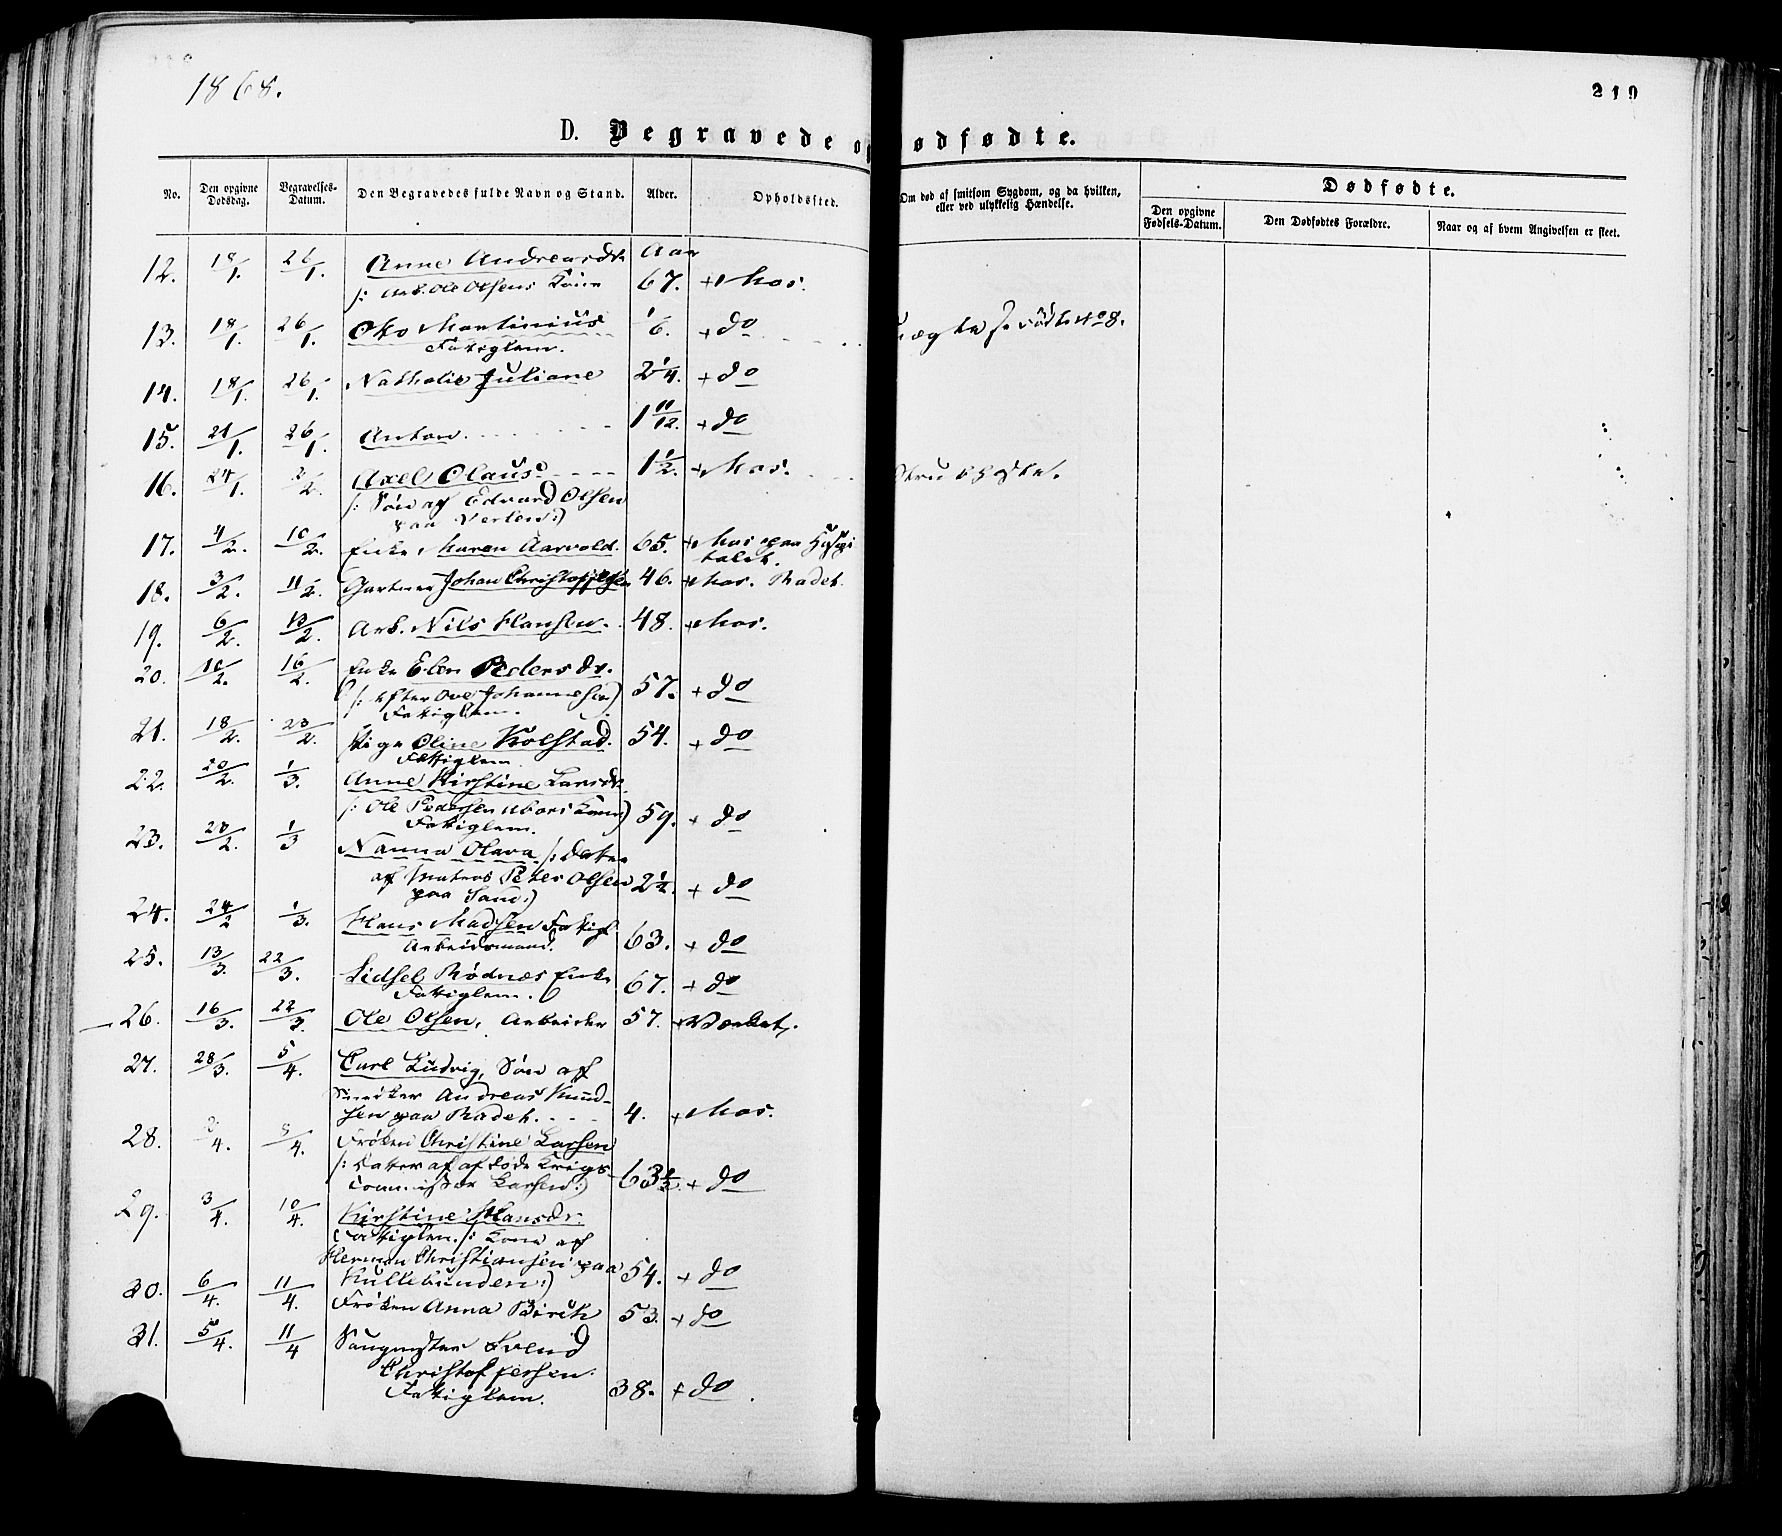 1868.
219
D. Begravede o
ødfødte.
No. Den opgivne Dødsdag. Begravelses-Datum. Den Begravedes fulde Navn og Stand. Alder. Opholdssted.
Om død af smitsom Sygdom, og da hvilken,
eller ved ulykkelig Hændelse.
Dødfødte.
Den opgivne Fødsels-Datum. Den Dødfødtes Forældre. Naar og af hvem Angivelsen er skeet.
12. 18/1. 26/1. Anne Andreasdr. Aar
/: Arb. Ole Olsens Kone 67. + Mos.
13. 18/1. 26/1. Martinius 1/6. + do
Fattiglem.
14. 18/1. 26/1. Nathalie Juliane 2 1/4. + do
15. 21/1. 26/1. Anton. 1 11/12. + do
16. 24/1. 2/2. Axel Olaus. 1 1/2. + Mos. Strubehoste.
/: Søn af Edvard Olsen
paa Verlen:)
17. 4/2. 10/2. Enke Maren Aarvold. 65. + Mos paa Hospi
talet.
18. 3/2. 11/2. Gartner Johan Christoffersen 46. + Mos. Radet.
19. 6/2. 13/2. Arb. Nils Hansen. 48. + Mos.
20. 10/2. 16/2. Enke Elen Pedersdr.
/: efter Ole Johannesen) 57. + do
Fattiglem.
21. 18/2. 23/2. Pige Oline Kolstad. 54. + do
Fattiglem.
22. 20/2. 1/3. Anne Kirstine Larsdr.
/: Ole Pedersen Kone) 59. + do
Fattiglem.
23. 23/2. 1/3 Nanna Olava /: Datter
af Matros Peter Olsen 2 1/2. + do
paa Sand:)
24. 24/2 1/3. Hans Madsen Fattigl
Arbeidsmand. 63. + do
25. 13/3. 22/3. Sidsel Rødnæs Enke 67. + do
Fattiglem.
26. 16/3. 22/3. Ole Olsen, Arbeider 57. + Værket.
27. 28/3. 5/4. Carl Ludvig, Søn af
Snedker Andreas Knud-
sen paa Radet. 4. + Mos.
28. 2/4. 8/4. Frøken Christine Larsen
/: Datter af afdøde Krigs-
commissær Larsen:) 63 1/2. + do
29. 3/4. 10/4. Kirstine Hansdr.
Fattiglem. /: Kone af
Herman Christiansen paa
Kullebunden:) 54. + do
30. 6/4. 11/4. Frøken Anna Birch 53. + do
31. 5/4. 11/4 Saugmester Svend
Christoffersen.
Fattiglem. 38. + do